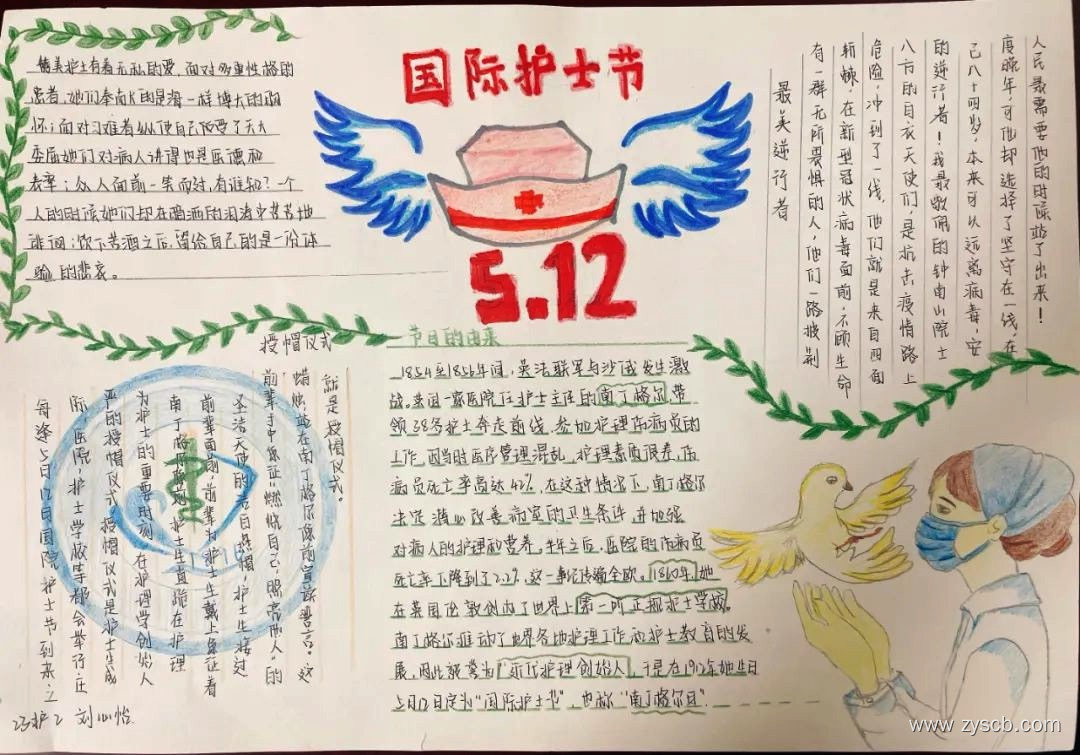 国际护士节
5.12
最美护士有着无私的爱,面对多重性格的
患者,她们奉献的是海一样博大的胸
怀;面对刁难者纵使自己收受了天大
委屈她们对病人讲得也是医德和
表率;众人面前一笑而过,有谁知?一个
人的时候她们却在洒洒的泪涛中苦苦地
徘徊;饮下苦酒之后,留给自己的是一份体
验的悲哀。
最美逆行者
有一群无所畏惧的人,他们一路披荆
斩棘,在新型冠状病毒面前,不顾生命
危险,冲到了一线,他们就是来自四面
八方的白衣天使们,是抗击疫情路上
的逆行者!我最敬佩的钟南山院士
已八十四岁,本来可以远离病毒,安
度晚年,可他却选择了坚守在一线,在
人民最需要他的时候站了出来!
授帽仪式
每逢5月12日国际护士节到来之
际,医院,护士学校等都会举行庄
严的授帽仪式。授帽仪式是护士生成
为护士的重要时刻,在护理学创始人
南丁格尔像前,护士生直跪在护理
前辈面前,前辈为护士生戴上象征着
圣洁天使的洁白燕帽,护士生接过
前辈手中象征"燃烧自己,照亮他人"的
蜡烛,站在南丁格尔像前宣读誓言。这
就是授帽仪式。
节日的由来
1854至1856年间,英法联军与沙俄发生激
战。英国一家医院任护士主任的南丁格尔带
领38名护士奔走前线,参加护理伤病员的
工作。因当时医疗管理混乱、护理素质很差,伤
病员死亡率高达42%,在这种情况下,南丁格尔
决定潜心改善病室的卫生条件,并加强
对病人的护理和营养。半年之后,医院的伤病员
死亡率下降到了2.2%,这一事迹传遍全欧。1860年,她
在英国伦敦创办了世界上第一所正规护士学校。
南丁格尔推动了世界各地护理工作和护士教育的发
展,因此被誉为"近代护理创始人",于是在1912年她生日
5月12日定为"国际护士节",也称"南丁格尔日".
23护2 刘心怡
www.zyscb.com